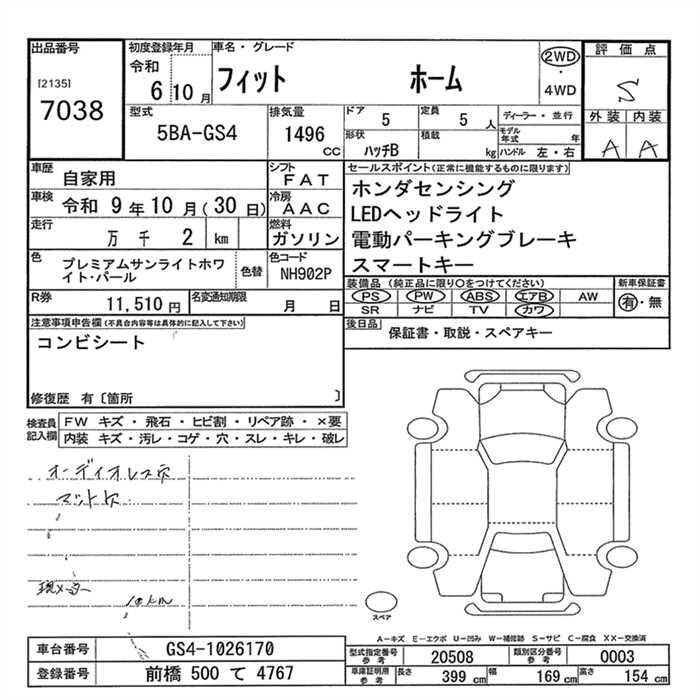 出品番号
[2135]
7038
初度登録年月
令和 6 10 月
車名・グレード
フィット ホーム
2WD
・
4WD
評価点
S
外装 内装
A A
型式
5BA-GS4
排気量
1496 CC
ドア 5
定員 5 人
形状 ハッチB
積載 kg
ディーラー・並行
モデル年式 年
ハンドル 左・右
車歴 自家用
シフト FAT
車検 令和 9 年 10 月(30 日)
冷房 AAC
走行 万 千 2 km
燃料 ガソリン
色 プレミアムサンライトホワイト・パール
色替
色コード NH902P
R券 11,510 円
名変通知期限 月 日
セールスポイント(正常に機能するものに限ります)
ホンダセンシング
LEDヘッドライト
電動パーキングブレーキ
スマートキー
装備品(純正品に限り○をつけてください)
PS PW ABS エアB AW
SR ナビ TV カワ
新車保証書
有・無
後日品 保証書・取説・スペアキー
注意事項申告欄(不具合内容等は具体的に記入して下さい)
コンビシート
修復歴 有〔箇所 〕
検査員記入欄
FW キズ・飛石・ヒビ割・リペア跡・×要
内装 キズ・汚レ・コゲ・穴・スレ・キレ・破レ
オーディオレス穴
マット欠
現メーター
10km
スペア
A-キズ E-エクボ U-凹み W-補修跡 S-サビ C-腐食 XX-交換済
車台番号 GS4-1026170
登録番号 前橋 500 て 4767
型式指定番号 参考 20508
類別区分番号 参考 0003
車庫証明用 参考 長さ 399 cm 幅 169 cm 高さ 154 cm